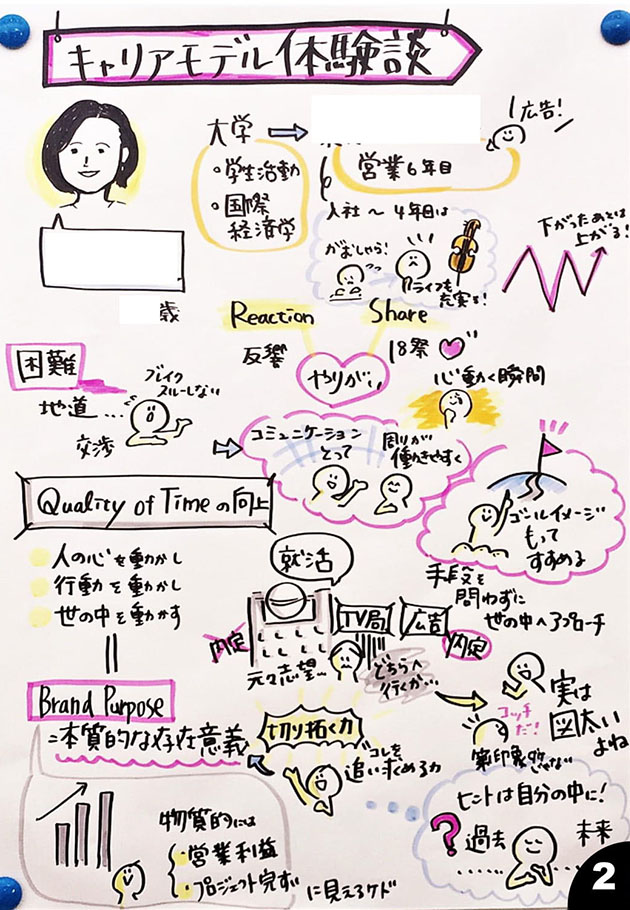 キャリアモデル体験談
大学
・学生活動
・国際
経済学
広告!
営業6年目
入社〜4年目は
がむしゃら!
ライフも
充実!
下がったあとは
上がる!
歳
Reaction
Share
反響
18祭
やりがい
心動く瞬間
困難
地道...
交渉
ブレイク
スルーしない
コミュニケーション
とって
周りが
働きやすく
ゴールイメージ
もって
すすめる
Quality of Timeの向上
人の心を動かし
行動を動かし
世の中を動かす
就活
TV局
広告
内定
内定
元々志望...
どちらへ
行くか...
手段を
問わずに
世の中へアプローチ
コッチ
だ!
実は
図太い
よね
第一印象
じゃない
Brand Purpose
=本質的な存在意義
切り拓く力
コレを
追い求める力
ヒントは自分の中に!
?
過去
未来
物質的には
・営業利益
・プロジェクト完了
に見えるケド
2